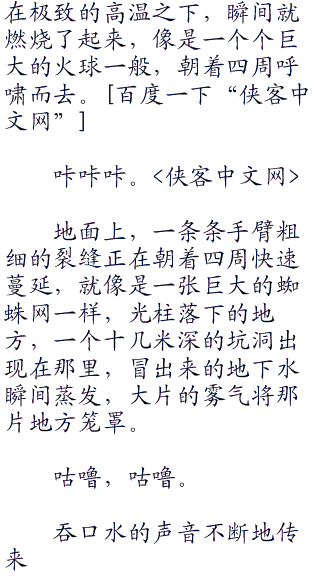 在极致的高温之下，瞬间就
燃烧了起来，像是一个个巨
大的火球一般，朝着四周呼
啸而去。[百度一下“侠客中
文网”]
咔咔咔。<侠客中文网>
地面上，一条条手臂粗
细的裂缝正在朝着四周快速
蔓延，就像是一张巨大的蜘
蛛网一样，光柱落下的地
方，一个十几米深的坑洞出
现在那里，冒出来的地下水
瞬间蒸发，大片的雾气将那
片地方笼罩。
咕噜，咕噜。
吞口水的声音不断地传
来